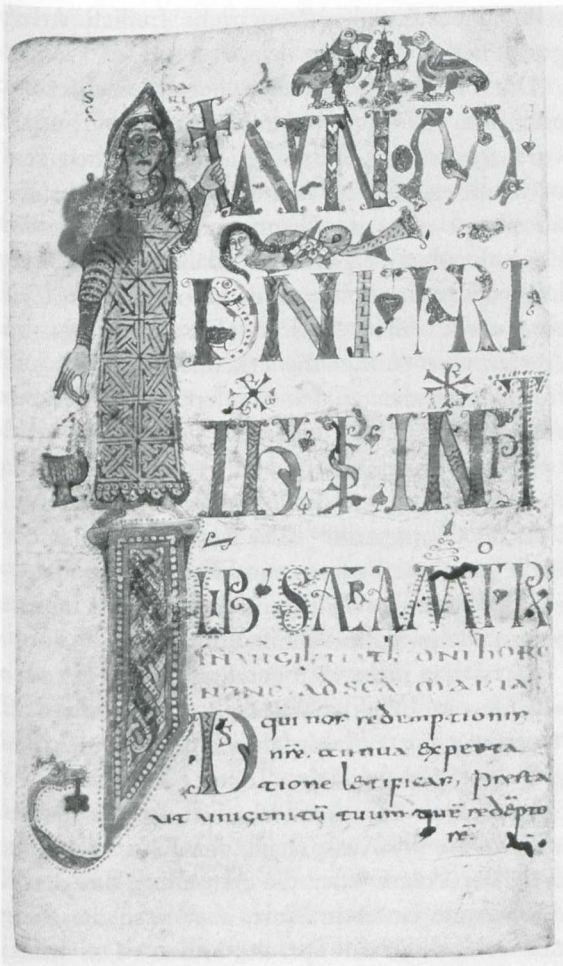 SCA MARIA
INNOM
DNI NRI
IHV
LIB' SACRAM
IN VIGILIA NTL DNI HORE
NONE ADSCA MARIA
DS qui nos redemptionis
nre. annua expecta
tione letificas, presta
ut unigenitū tuum quē redēpto
rē